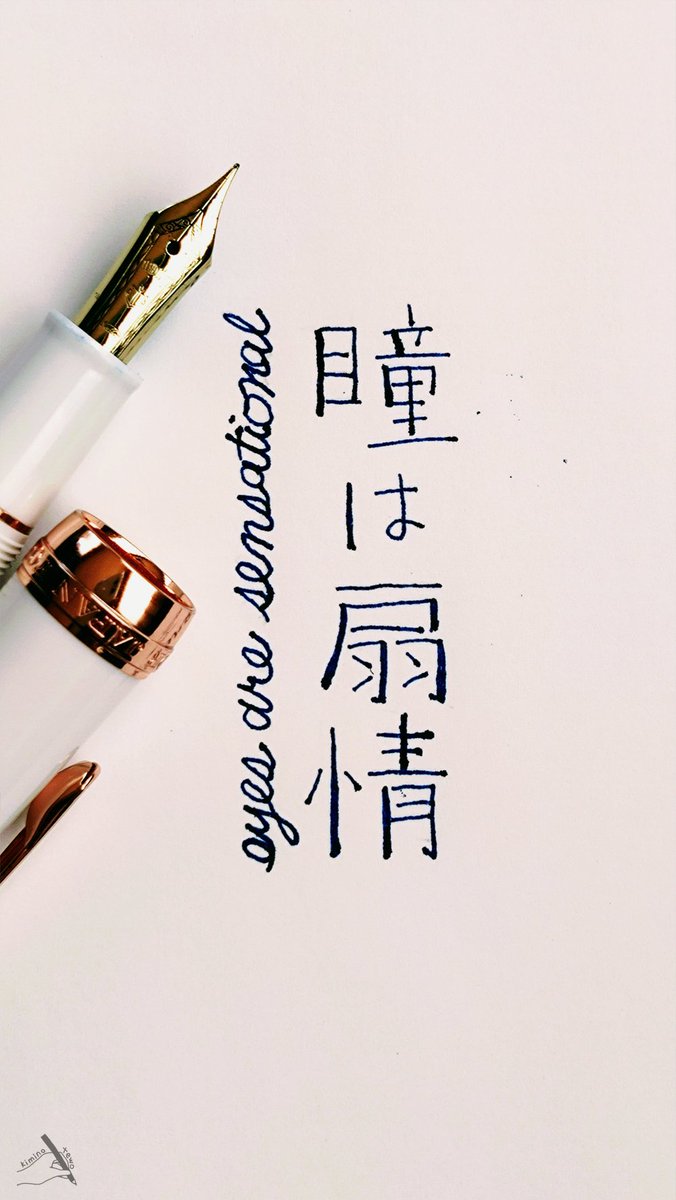 瞳は扇情
eyes are sensational
kimino
tewo